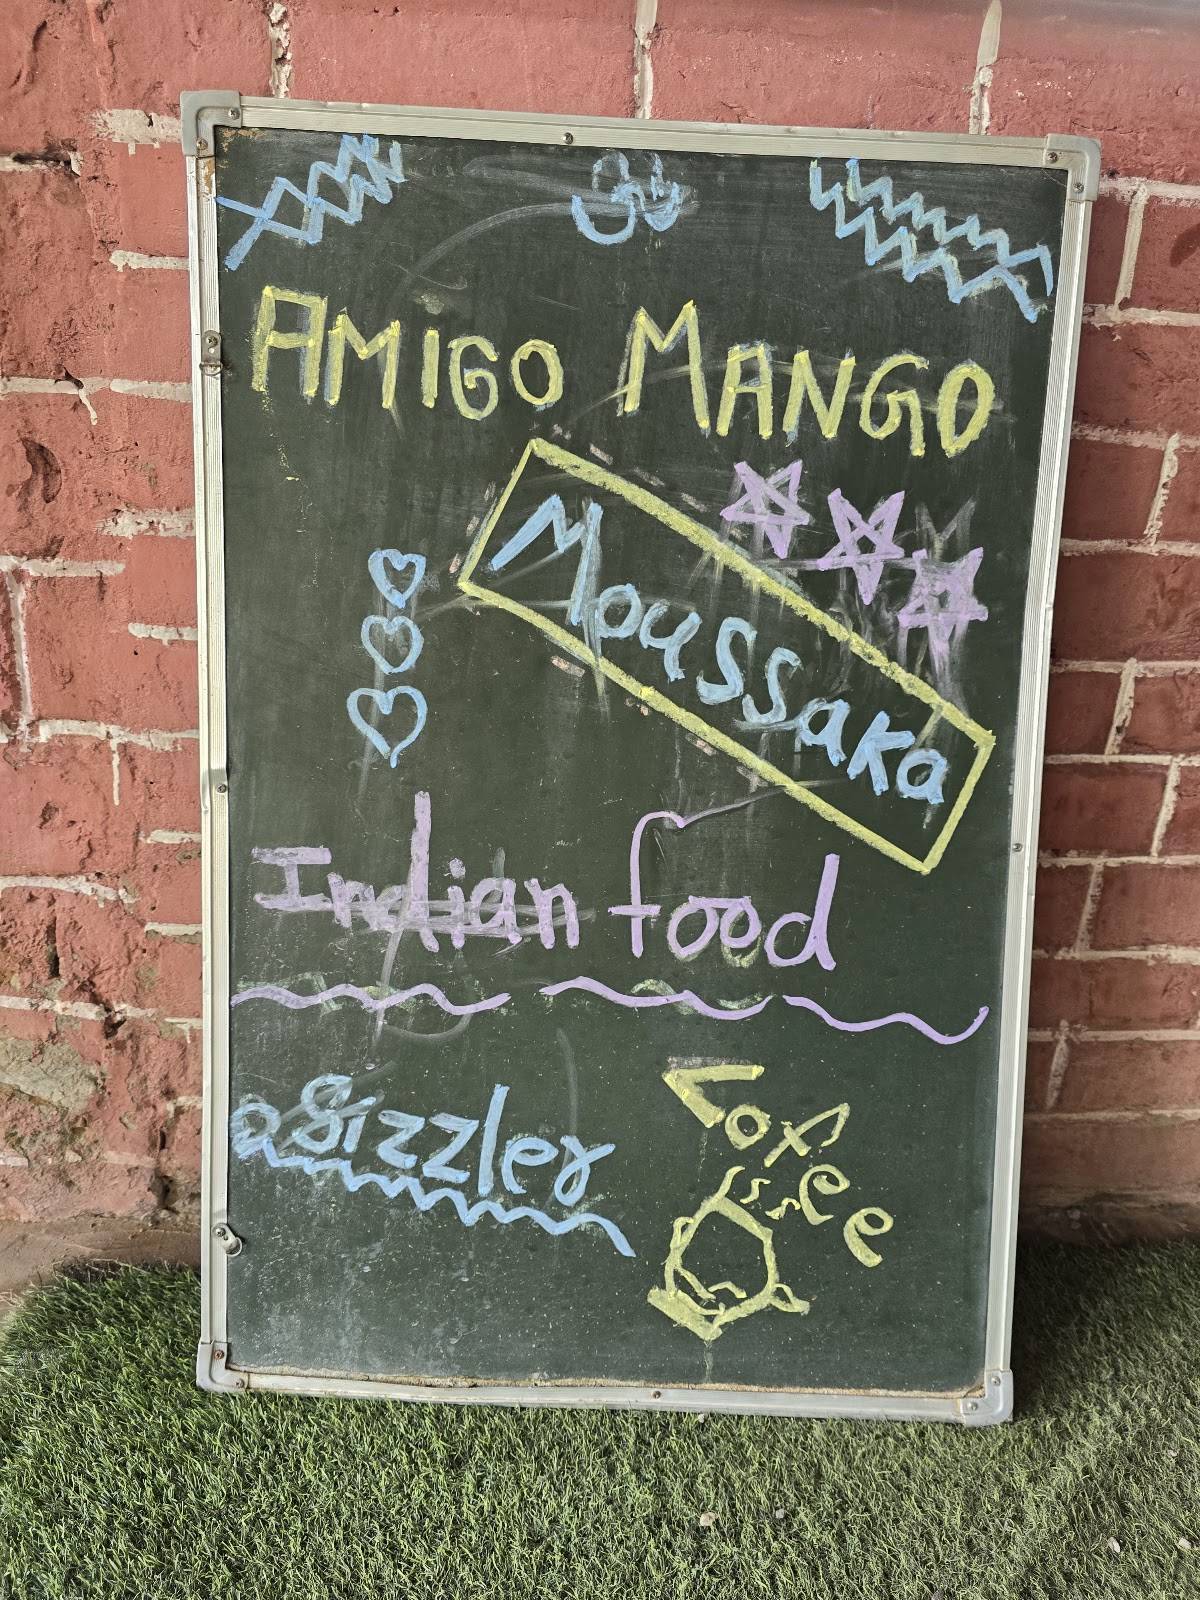 ॐ
AMIGO MANGO
Moussaka
Indian food
Sizzler
Coffee